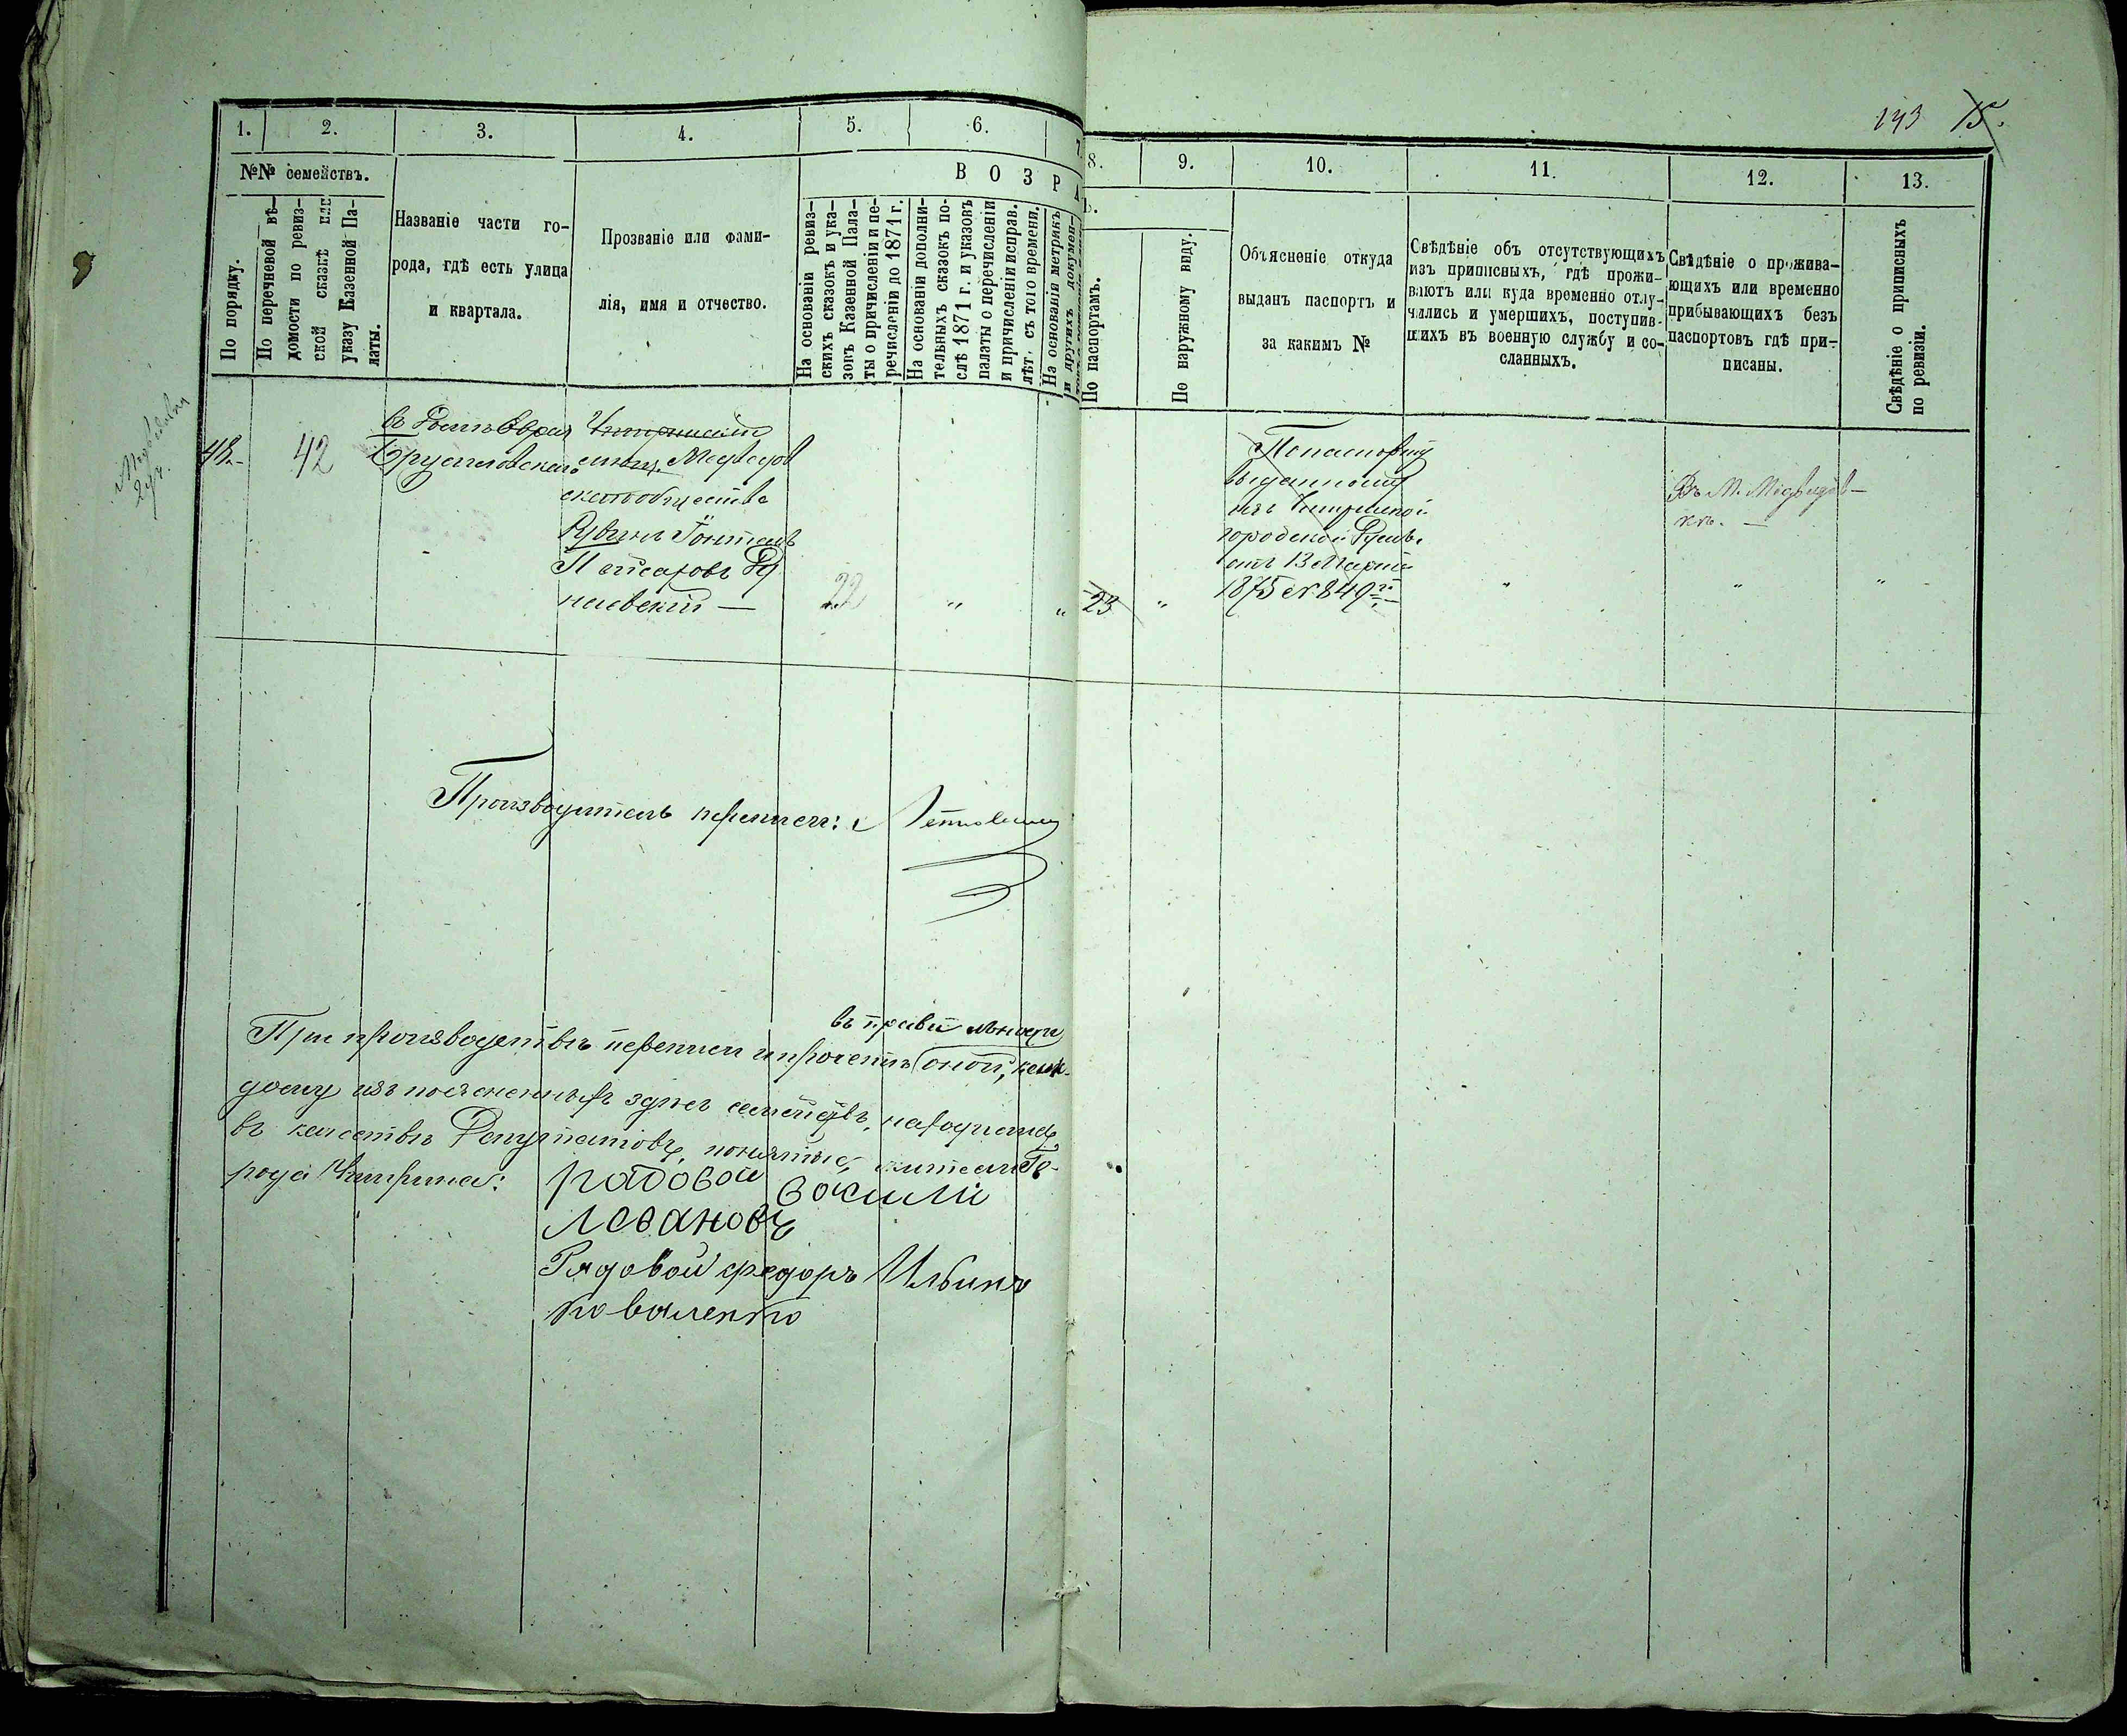 143 15.
1.
2.
3.
4.
5.
6.
7.
8.
9.
10.
11.
12.
13.
№№ семействъ.
По порядку.
По перечневой вѣ-
домости по ревиз-
ской сказкѣ или
указу Казенной Па-
латы.
Названіе части го-
рода, гдѣ есть улица
и квартала.
Прозваніе или фами-
лія, имя и отчество.
В О З Р А
На основаніи ревиз-
скихъ сказокъ и ука-
зокъ Казенной Пала-
ты о причисленіи и пе-
речисленіи до 1871 г.
На основаніи дополни-
тельныхъ сказокъ по-
слѣ 1871 г. и указовъ
палаты о перечисленіи
и причисленіи исправ.
лѣт. съ того времени.
На основаніи метрикъ
и другихъ докумен-
ь.
По паспортамъ.
По наружному виду.
Объясненіе откуда
выданъ паспортъ и
за какимъ №
Свѣдѣніе объ отсутствующихъ
изъ приписныхъ, гдѣ прожи-
ваютъ или куда временно отлу-
чились и умершихъ, поступив-
шихъ въ военную службу и со-
сланныхъ.
Свѣдѣніе о прожива-
ющихъ или временно
прибывающихъ безъ
паспортовъ гдѣ при-
писаны.
Свѣдѣніе о приписныхъ
по ревизіи.
Медведовки
48.
42
въ домѣ Еврея
Брусиловскаго
Медведов
скаго общества
Рувинъ
Пейсаховъ Ду
наевскій —
22
"
"
23
"
По паспорту
выданному
изъ Чигиринской
городской Думы
отъ 13 Марта
1875 № 849
"
Въ М. Медвидов-
кѣ. —
"
"
Производитель переписи:
При производствѣ переписи и прочетѣ въ правильности оной, каж-
дому изъ поясненныхъ здѣсь семействъ, находились
въ качествѣ Депутатовъ, понятые, жители Го-
рода Чигирина: радовой василій
Ловановъ
Рядовой федоръ Ильинъ
коваленко